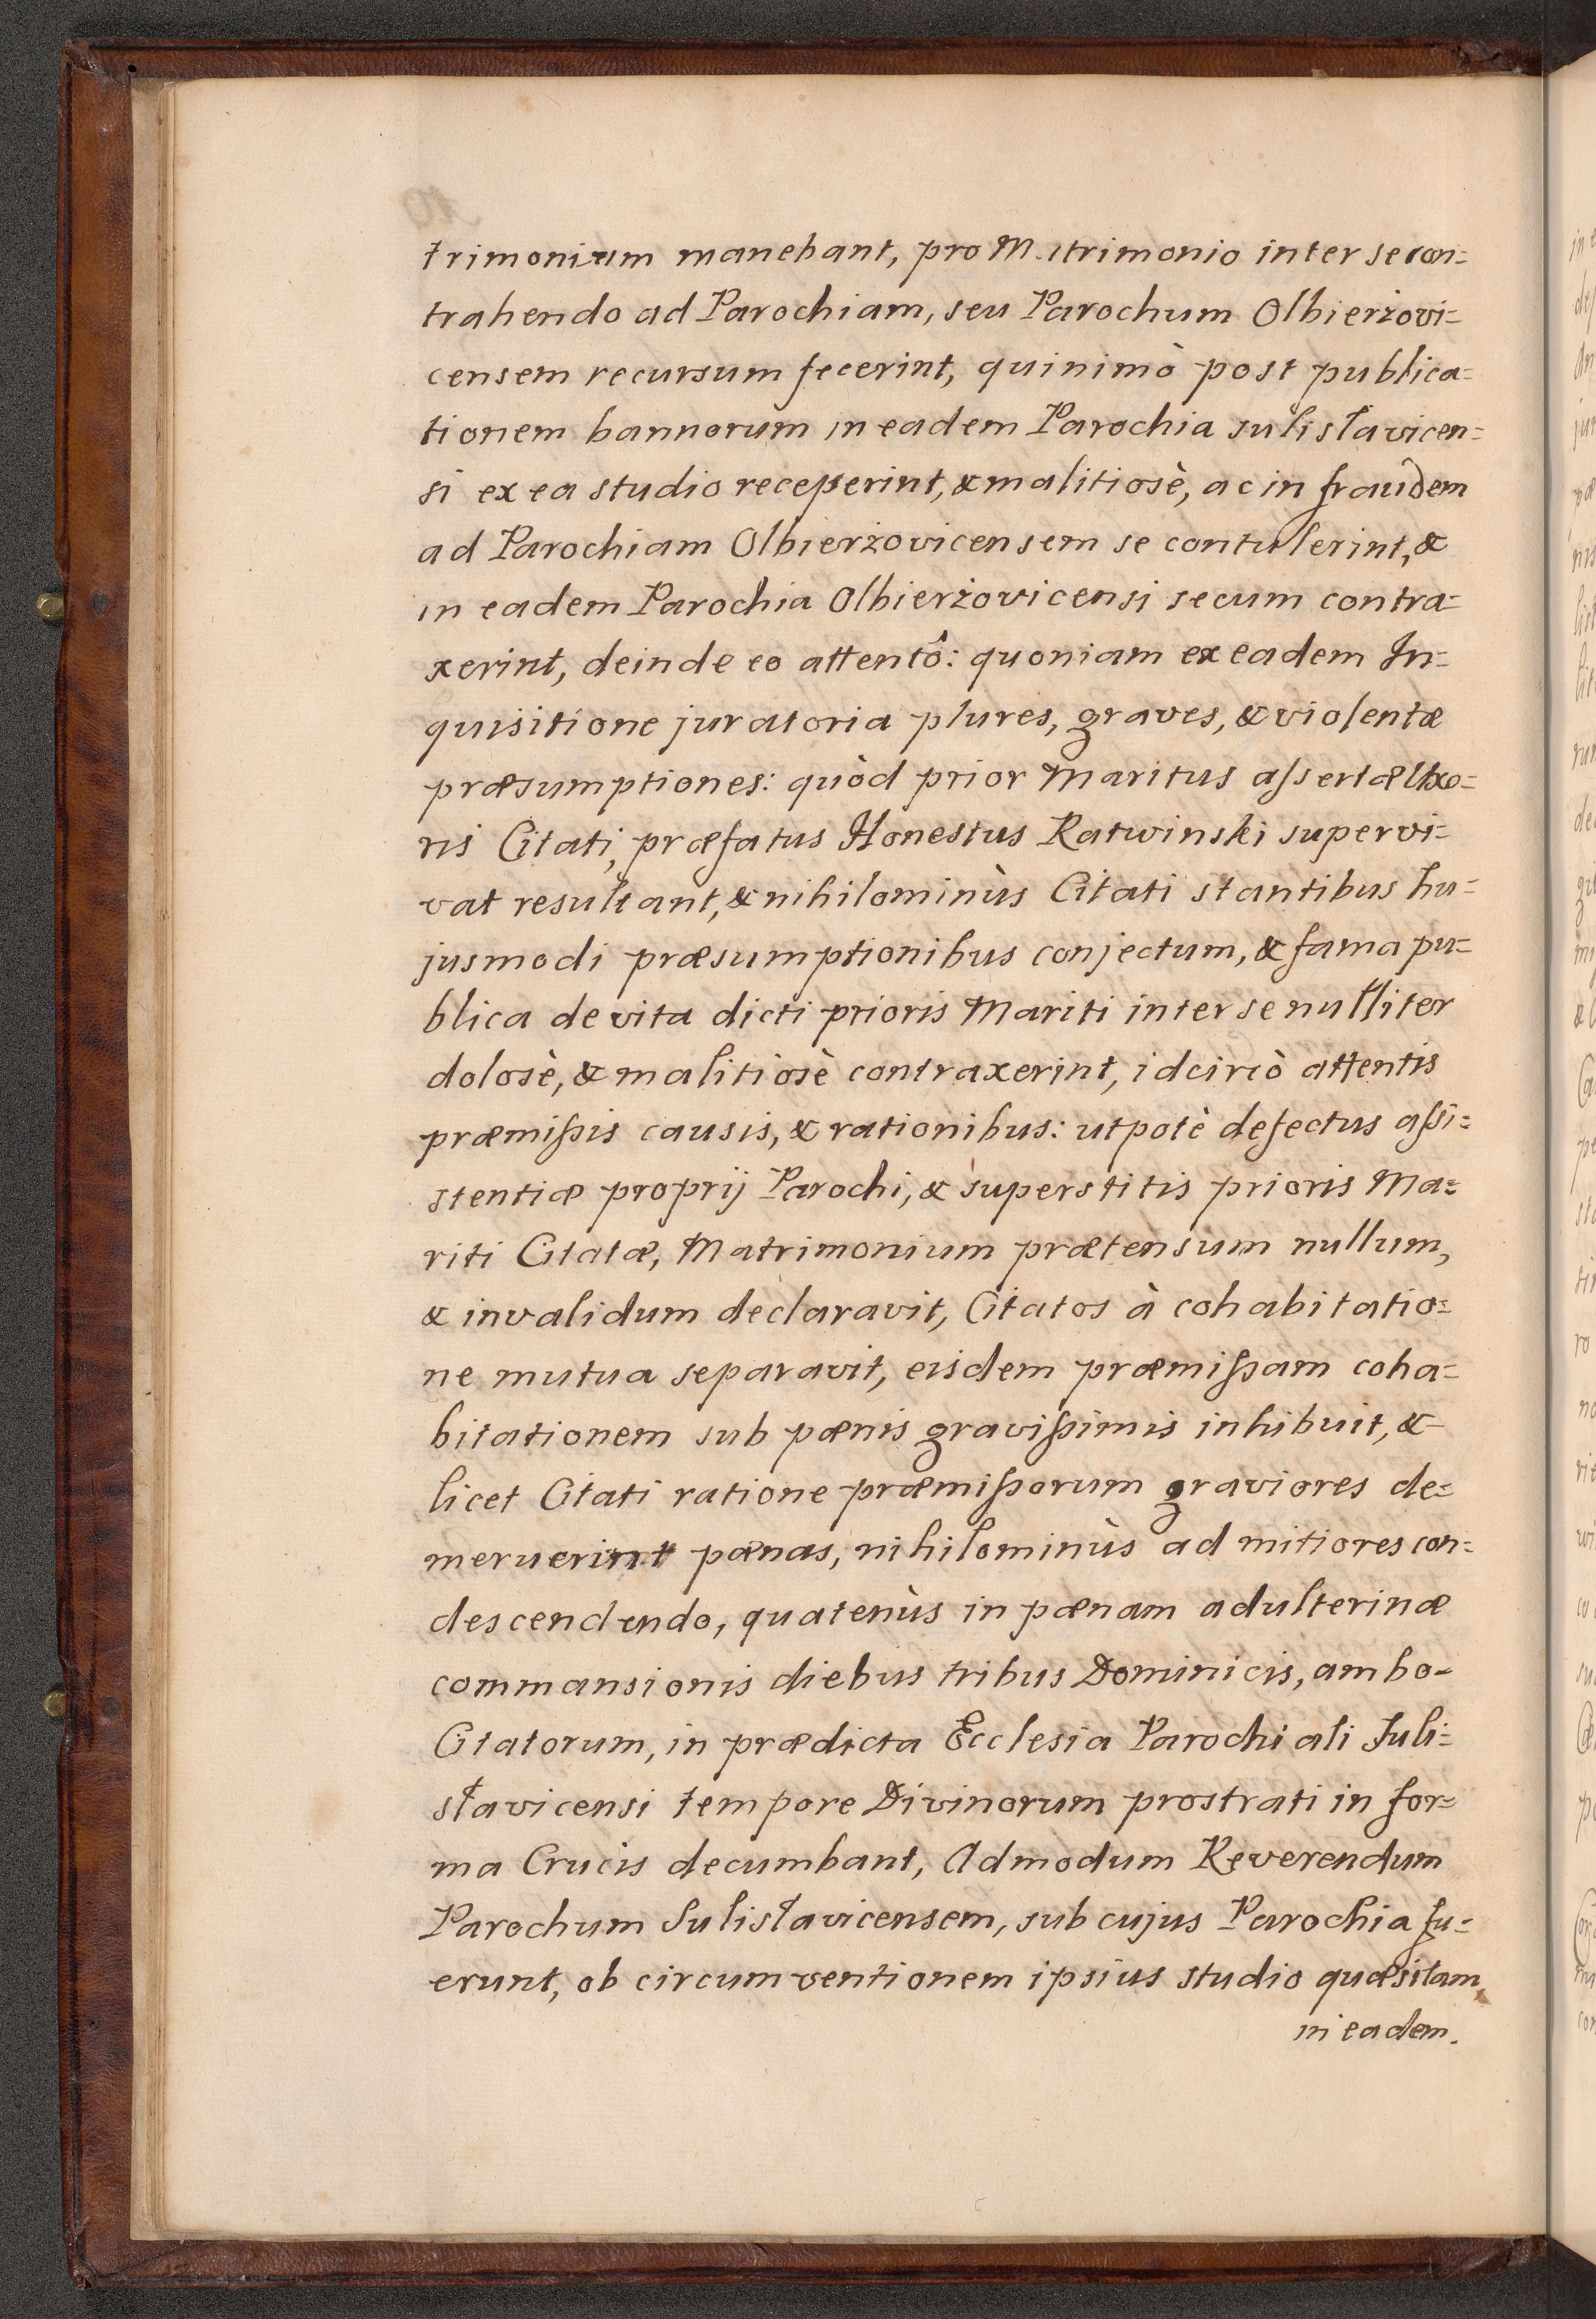 trimonium manebant, pro Matrimonio inter se con=
trahendo ad Parochiam, seu Parochum Olbierżovi=
censem recursum fecerint, quinimò post publica=
tionem bannorum in eadem Parochia sulisłavicen=
si ex ea studio recesserint, & malitiosè, ac in fraudem
ad Parochiam Olbierżovicensem se contulerint, &
in eadem Parochia Olbierżovicensi secum contra=
xerint, deinde eo attentô: quoniam ex eadem In=
quisitione juratoria plures, graves, & violentæ
præsumptiones: quòd prior Maritus assertæ Uxo=
ris Citati, præfatus Honestus Ratwinski supervi=
vat resultant, & nihilominùs Citati stantibus hu=
jusmodi præsumptionibus conjectum, & fama pu=
blica de vita dicti prioris Mariti inter se nulliter
dolosè, & malitiosè contraxerint, idcircò attentis
præmissis causis, & rationibus: utpotè defectus assi=
stentiæ proprij Parochi, & superstitis prioris Ma=
riti Citatæ, Matrimonium prætensum nullum,
& invalidum declaravit, Citatos à cohabitatio=
ne mutua separavit, eisdem præmissam coha=
bitationem sub pænis gravissimis inhibuit, &
licet Citati ratione præmissorum graviores de=
meruerint pænas, nihilominùs ad mitiores con=
descendendo, quatenùs in pænam adulterinæ
commansionis diebus tribus Dominicis, ambo=
Citatorum, in prædicta Ecclesia Parochiali Suli=
sławicensi tempore Divinorum prostrati in for=
ma Crucis decumbant, Admodum Reverendum
Parochum Sulisłavicensem, sub cujus Parochia fu=
erunt, ob circumventionem ipsius studio quæsitam,
in eadem.